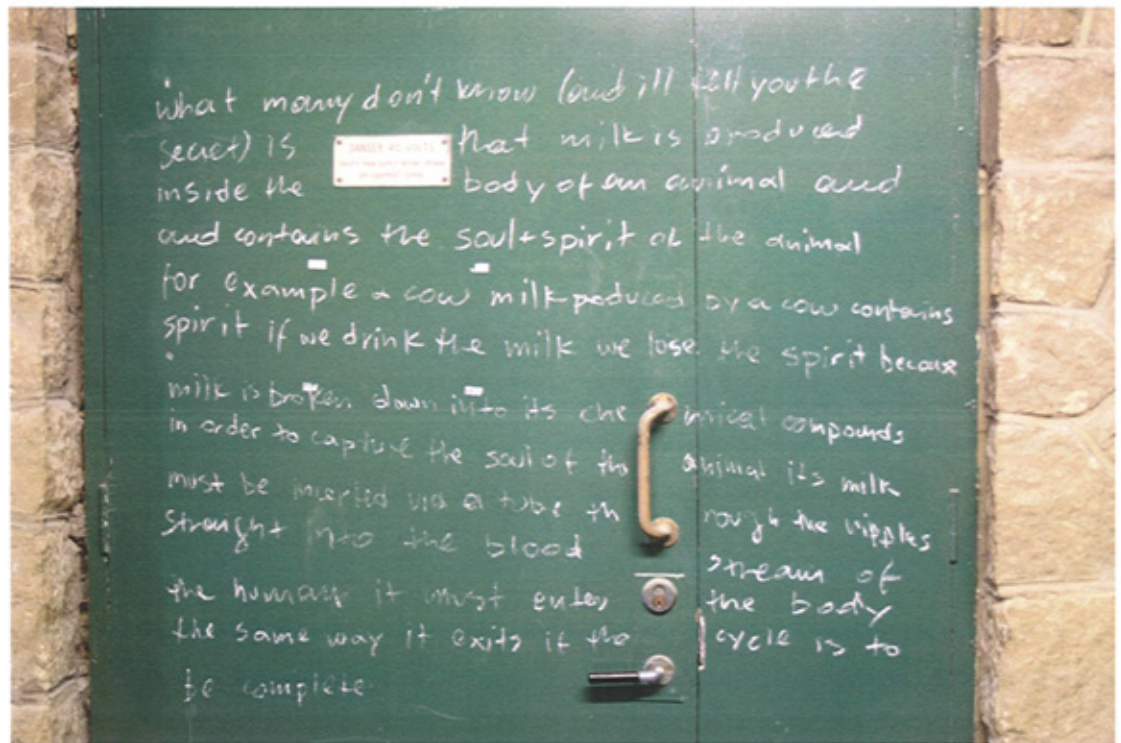 what many don't know (and ill tell you the
secret) is that milk is produced
DANGER 415 VOLTS
inside the body of an animal and
and contains the soul+spirit of the animal
for example a cow milk poduced by a cow contains
spirit if we drink the milk we lose the spirit because
milk is broken down into its che mical compounds
in order to capture the soul of the animal its milk
must be inserted via a tube th rough the nipples
straight into the blood stream of
the human it must enter the body
the same way it exits if the cycle is to
be complete